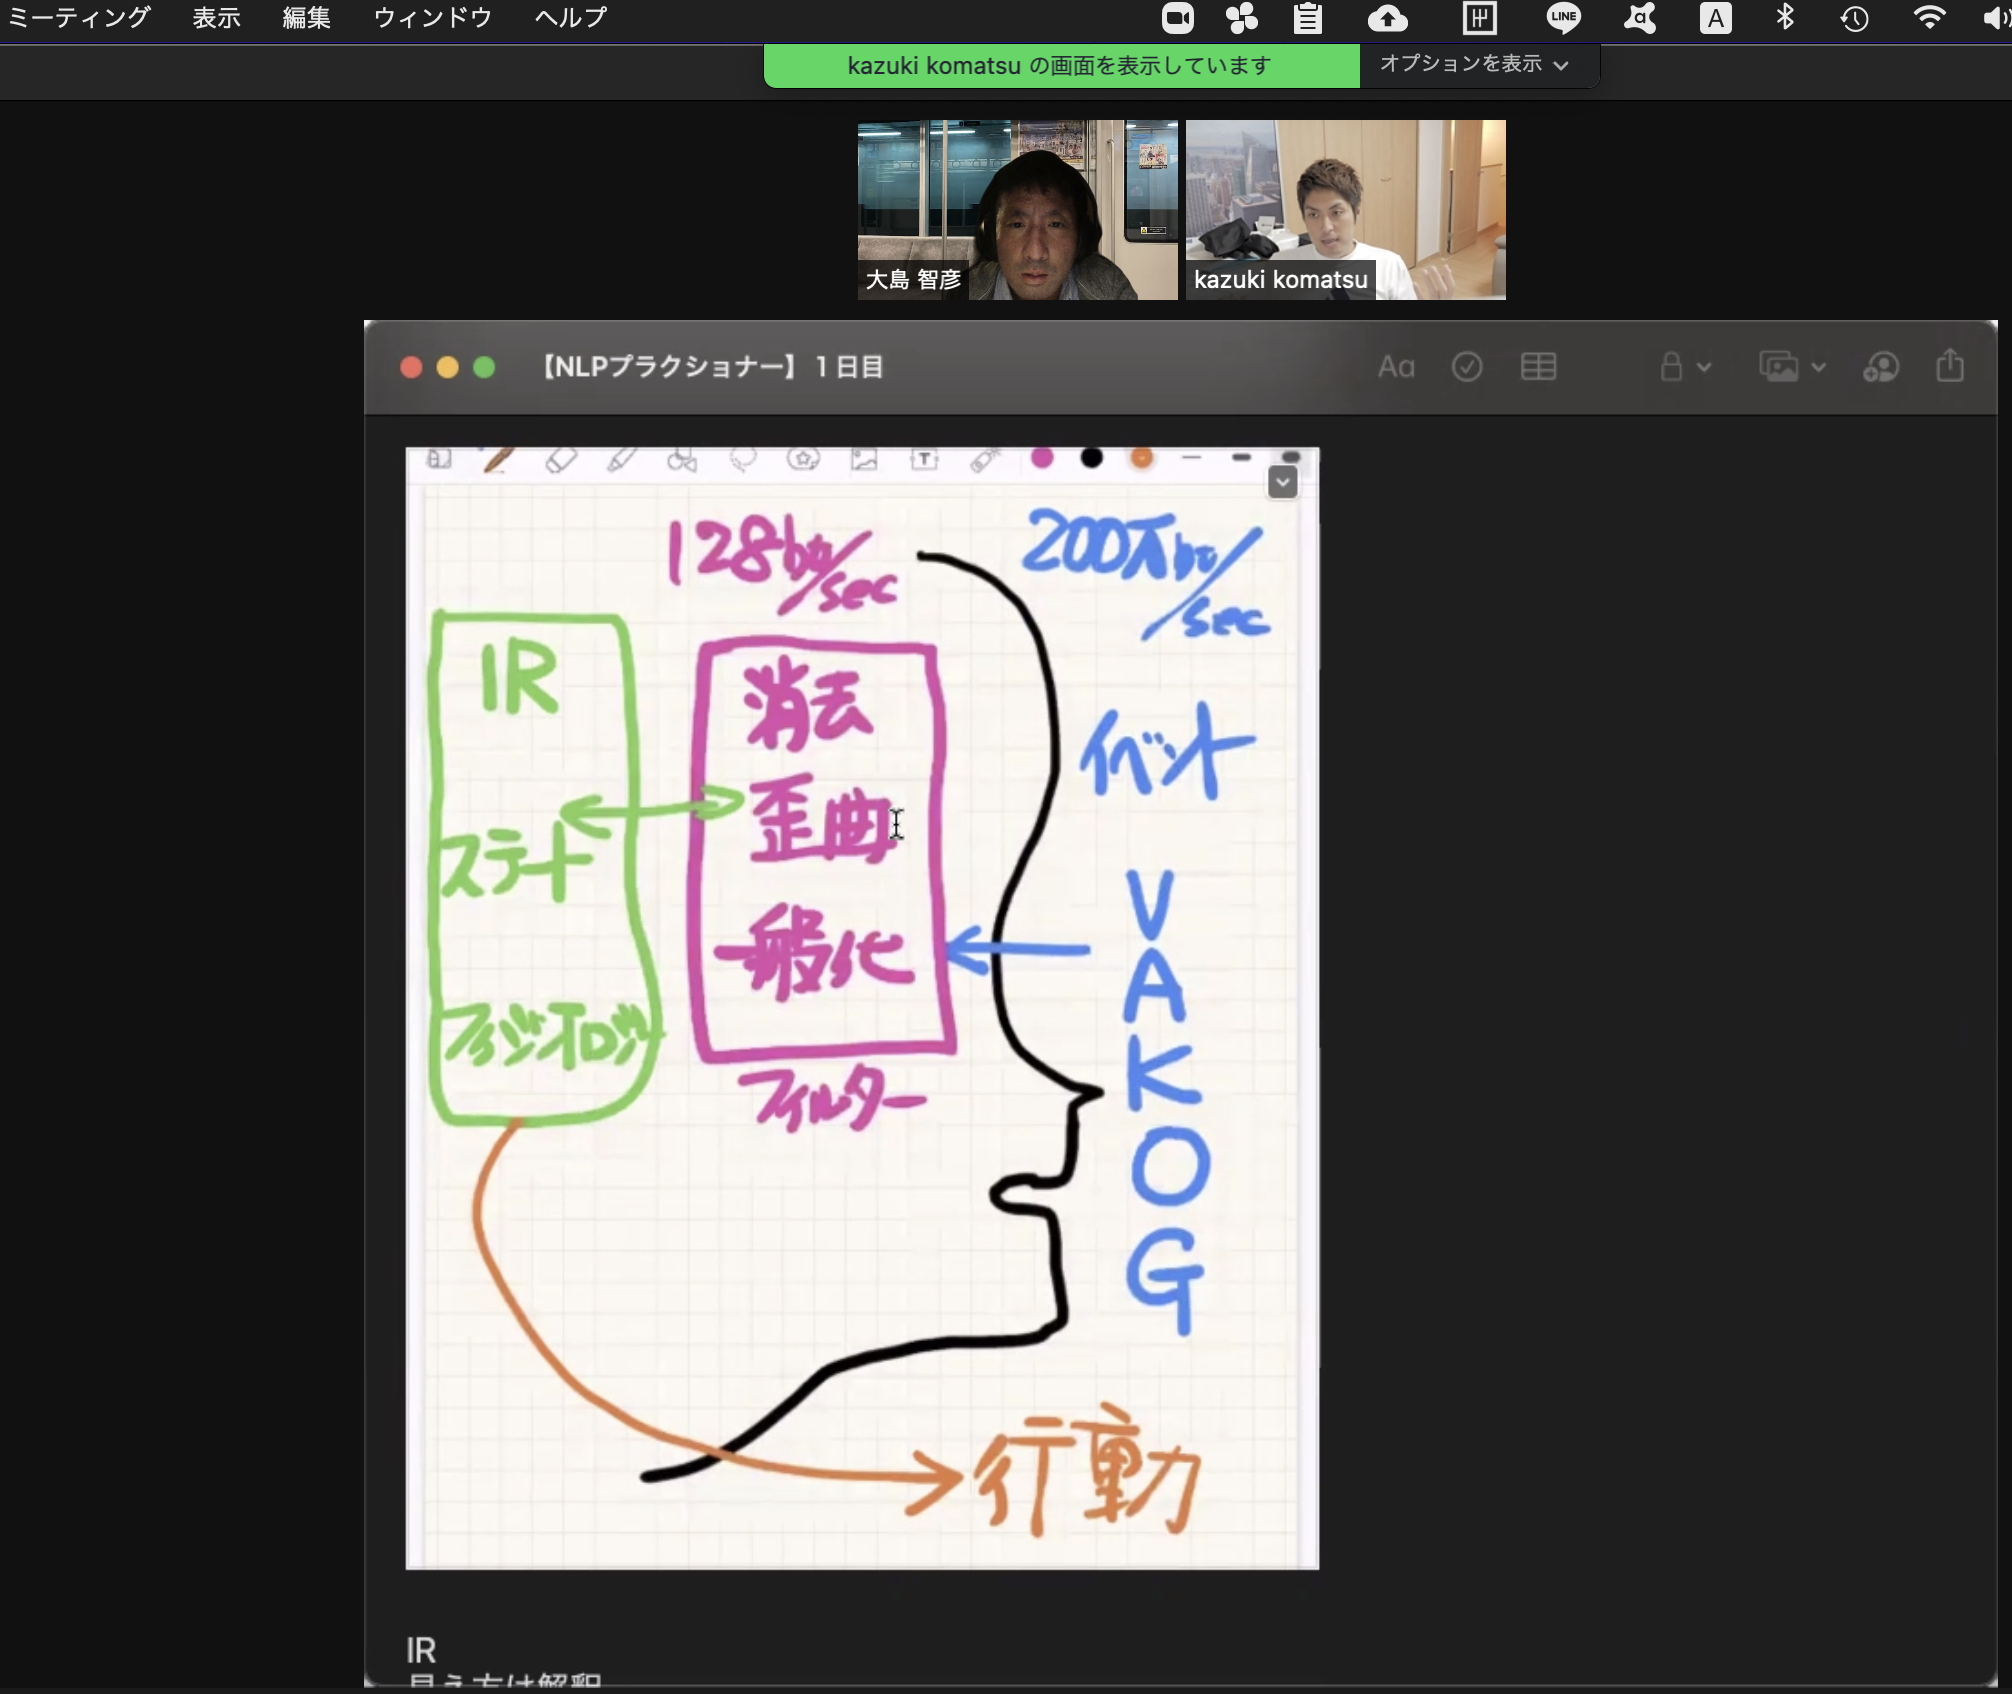 ミーティング 表示 編集 ウィンドウ ヘルプ
LINE
A
kazuki komatsu の画面を表示しています オプションを表示
大島 智彦
kazuki komatsu
【NLPプラクショナー】１日目
Aa
T
128bit/sec
200万bit/sec
IR
ステート
フィジオロジー
消去
歪曲
一般化
フィルター
イベント
V
A
K
O
G
行動
IR
見え方は解釈